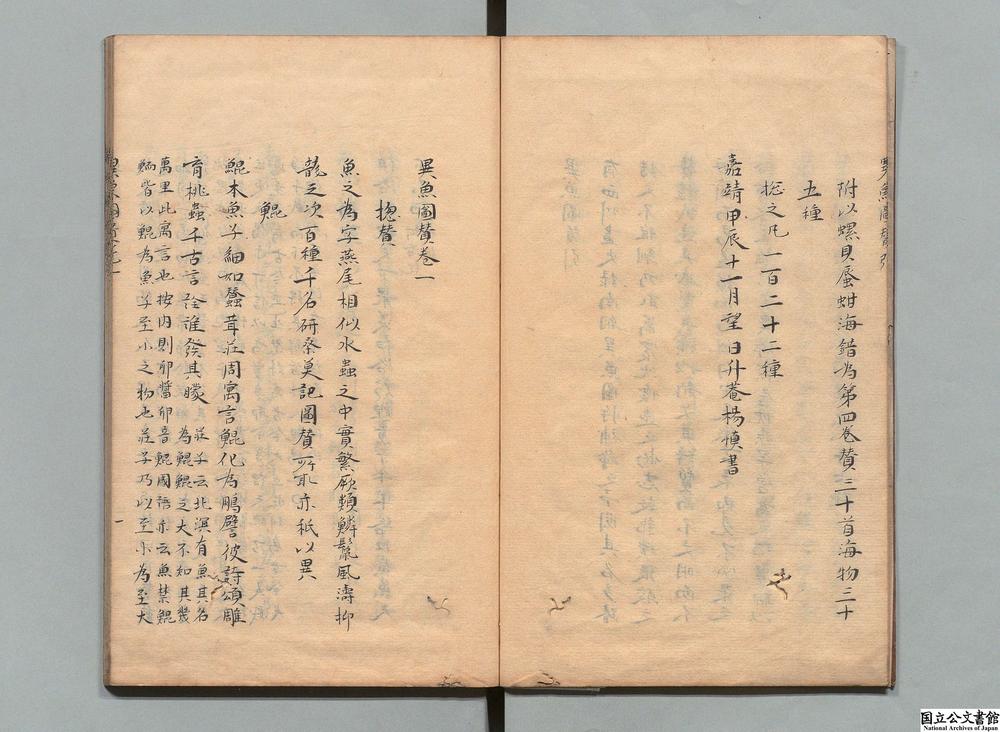 附以螺貝蜃蚶海錯為第四卷贊三十首海物三十
五種
捴之凡一百二十二種
嘉靖甲辰十一月望日升菴楊慎書
異魚圖贊卷一
捴贊
魚之為字燕尾相似水蟲之中實繁厥類鱗鬣風濤抑
龍之次百種千名研桑莫記圖贊所取亦秖以異
鯤
鯤本魚子細如蠶茸莊周寓言鯤化為鵬譬彼詩頌雕
育桃蟲千古言詮誰發其矇
莊子云北溟有魚其名
為鯤鯤之大不知其幾
萬里此寓言也按內則卵醬卵音鯤國語亦云魚禁鯤
鮞皆以鯤為魚子至小之物也莊子乃以至小為至大
一
国立公文書館
National Archives of Japan